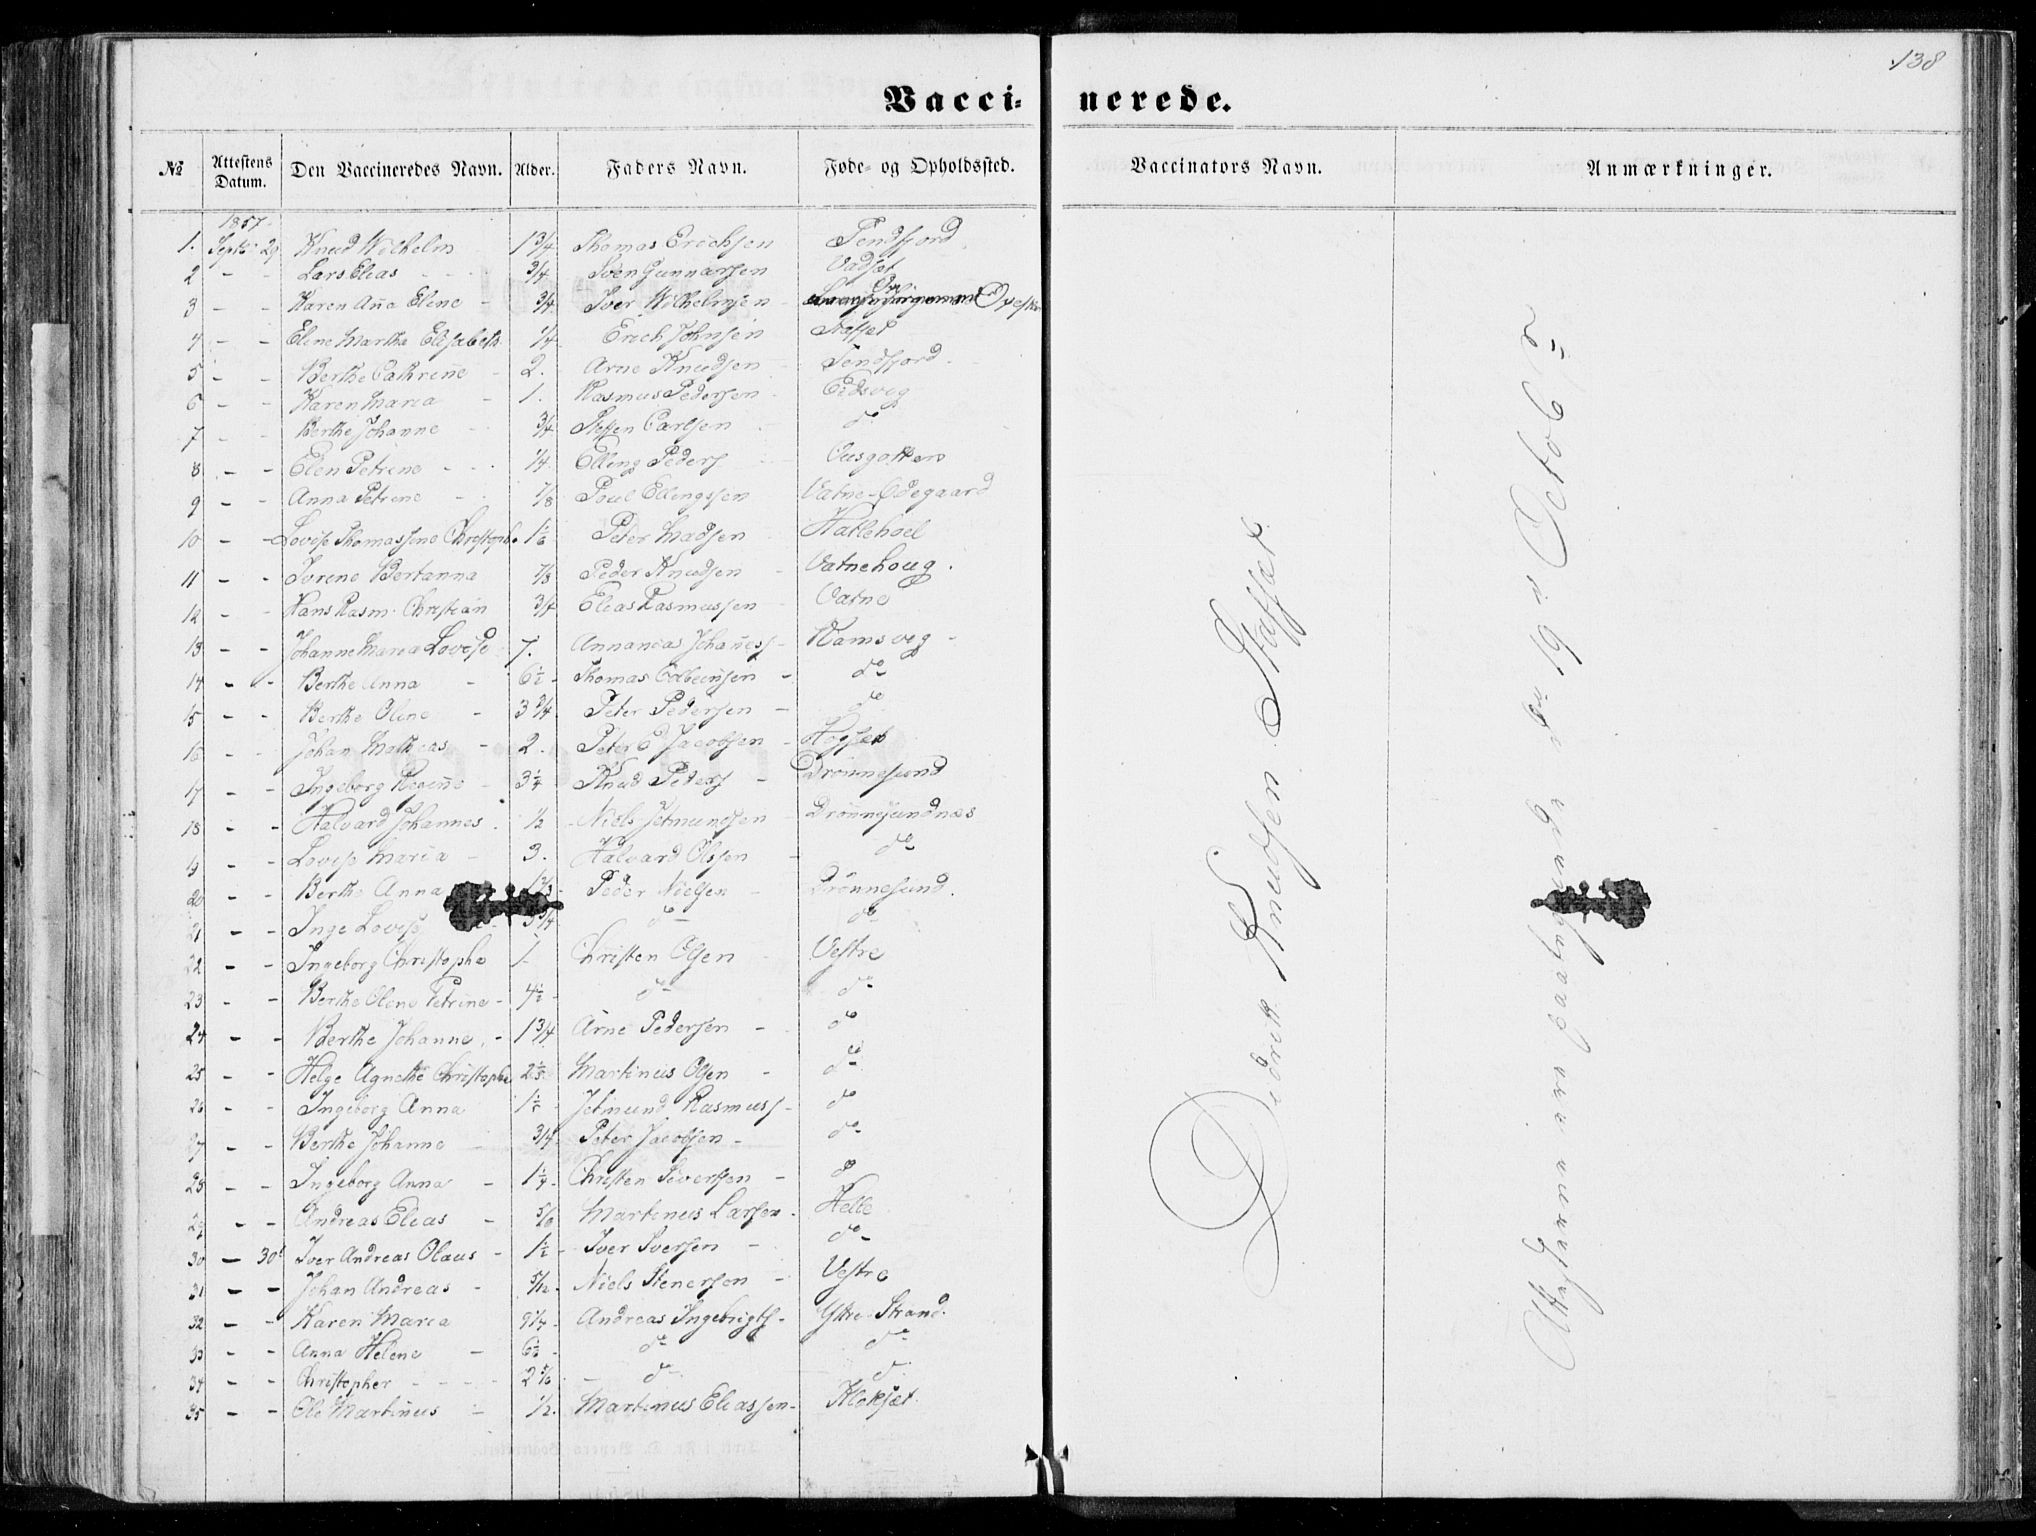 138
Vaccinerede.
№ Attestens Datum. Den Vaccineredes Navn. Alder. Faders Navn. Føde- og Opholdssted. Vaccinators Navn. Anmærkninger.
1857
1. Septb: 29 Knud Wilhelm 1 3/4 Thomas Erichsen Tendfjord
2 - - Lars Elias 3/4 Sven Gunnarsen Vadset
3 - - Karen Aña Elene - 3/4 Iver Wilhelmsen
4 - - Elene Martha Elisabeth 1/4 Erich Johnsen Staffset
5 - - Berthe Cathrine - 2. Arne Knudsen Tendfjord
6 - - Karen Maria - 1. Rasmus Pedersen Eidsvig
7 - - Berthe Johanne 3/4 Steffen Carlsen do
8 - - Elen Petrine 1/4 Elling Peders
9 - - Anna Petrine 7/8 Poul Ellingssen Vatne-Ødegaard
10 - - Lovise Thomassine Christoph. 1 1/6 Peter Madsen Hatlehoel
11 - - Iverene Bertanna 7/8 Peder Knudsen - Vatnehoug.
12 - - Hans Rasm. Christian 3/4 Elias Rasmussen Vatne
13 - - Johanne Maria Lovise 7. Annanias Johañess - Ramsvig -
14 - - Berthe Anna - 6 1/2 - Thomas Colbeinsen - do
15 - - Berthe Oline - 3 3/4 Peter Pedersen - do
16 - - Johan Mathias - 2. Peter E Jacobsen - Hogset
17 - - Ingeborg Regine - 3 1/4 Knud Peders - Drønnesund
18 - - Halvard Johannes. 1/2 Niels Jetmundsen - Drønnesundnæs
19 - - Lovise Maria - 3. Halvard Olssen - do
20 - - Berthe Anna 1 2/3 - Peder Nielsen - Drønnesund.
21 - - Inge Lovise 3 3/4 do do
22 - - Ingeborg Christophe 1. Christen Olsen Vestre
23 - - Berthe Oline Petrine - 4 1/2 - do do
24 - - Berthe Johanne. - 1 3/4 Arne Pedersen - do
25 - - Helge Agnethe Christophe 2 1/5 Martinus Olsen - do
26 - - Ingeborg Anna 1 1/5 - Jetmund Rasmuss - do
27 - - Berthe Johanne - 3/4 - Peter Jacobsen - do
28 - - Ingeborg Anna - 1 1/4 - Christen Sivertsen - do
29 - - Andreas Elias - 5/6 Martinus Larsen - Helle
30 - 30' Iver Andreas Olaus - 1 1/2 - Iver Iversen - do
31 - - Johan Andreas - 5/12 - Niels Stenersen - Vestre
32 - - Karen Maria 9 1/4 - Andreas Ingebrigts - Yttre Strand.
33 - - Anna Helene - 6 1/2 - do do
34 - - Christopher - - - - 2 5/6 - do - do
35 - - Ole Martinus - 1/2. Martinus Eliassen - Kloksæt.
Didrik Knudsen Staffset
Attesterne ere paategnede den 19de Octobr